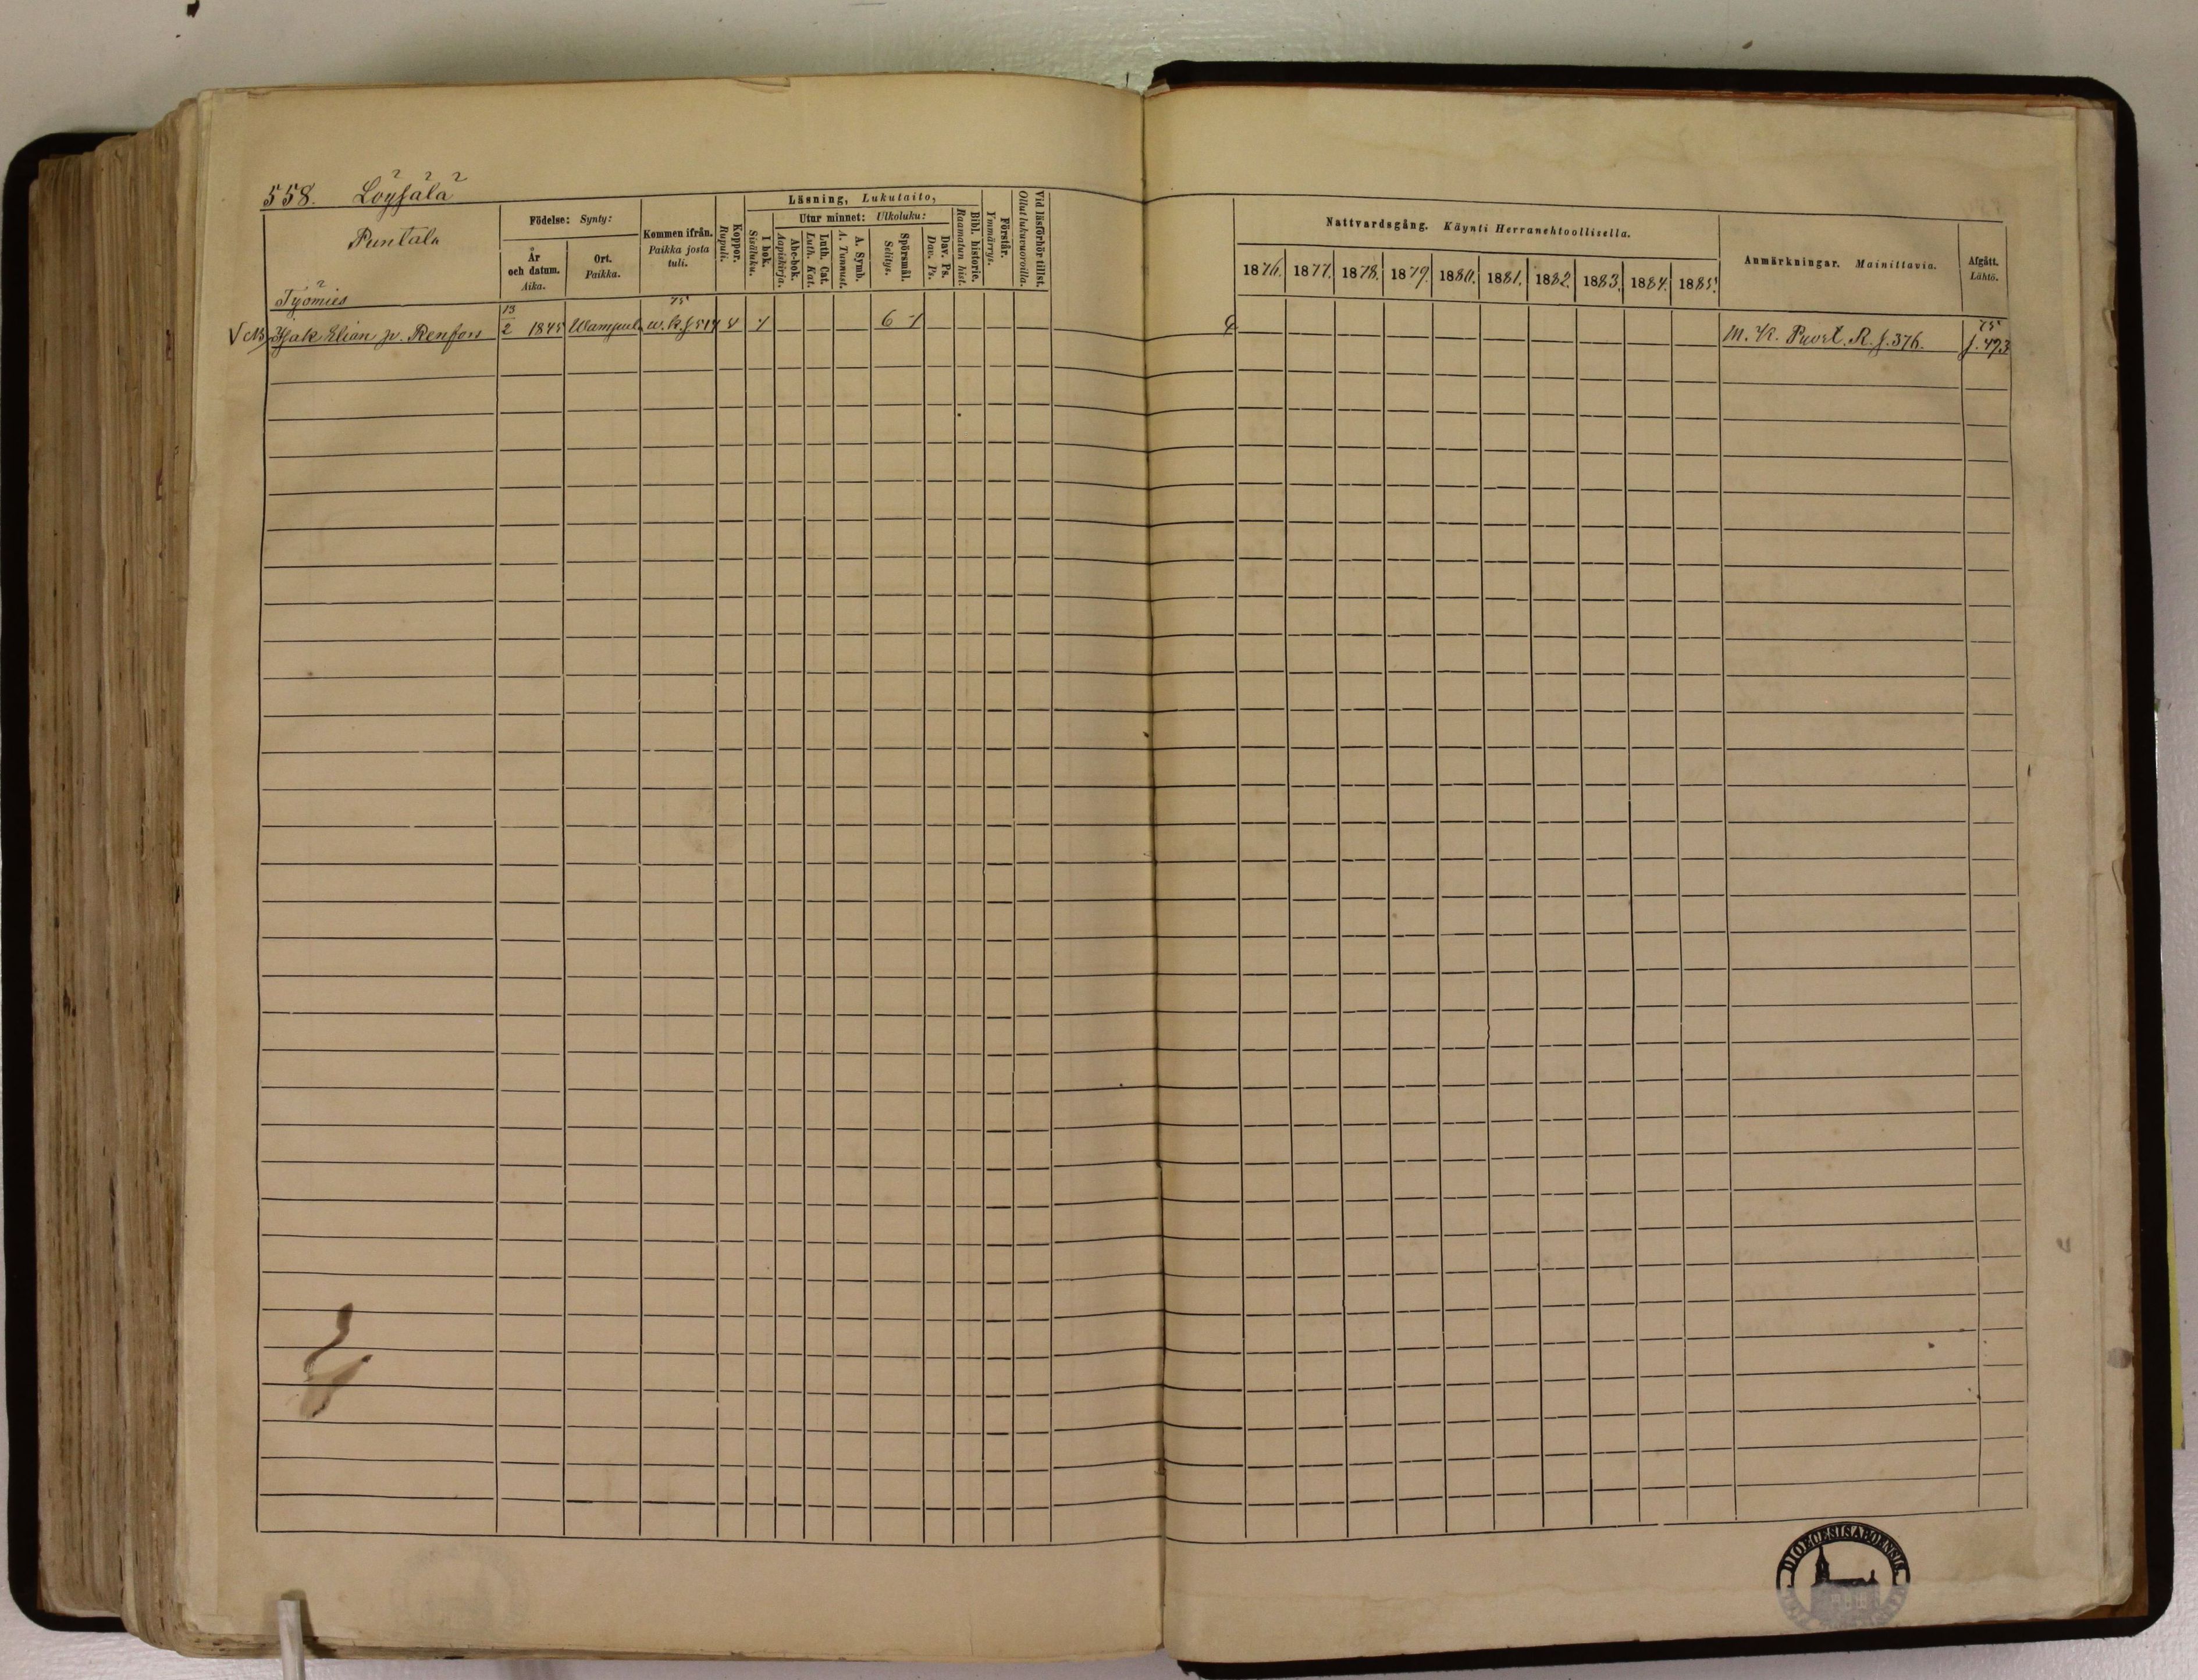 558. Löysälä
Puntala
Födelse: Synty:
År och datum. Aika.
Ort. Paikka.
Kommen ifrån. Paikka josta tuli.
Koppor. Rupuli.
Läsning, Lukutaito,
I bok. Sisäluku.
Utur minnet: Ulkoluku:
Abc-bok. Aapiskirja.
Luth. Cat. Luth. Kat.
A. Symb. A. Tunnust.
Spörsmål. Selitys.
Dav. Ps. Dav. Ps.
Bibl. historie. Raamatun hist.
Förstår. Ymmärrys.
Vid läsförhör tillst. Ollut lukuvuoroilla.
Nattvardsgång. Käynti Herranehtoollisella.
1876. 1877. 1878. 1879. 1880. 1881. 1882. 1883. 1884. 1885.
Anmärkningar. Mainittavia.
Afgått. Lähtö.
Työmies
Isak Elian p. Renfors 13/2 1845 75 w. k. s 514 6 M. K. R. s. 376. 75 s. 493
DIOECESIS ABOENSIS